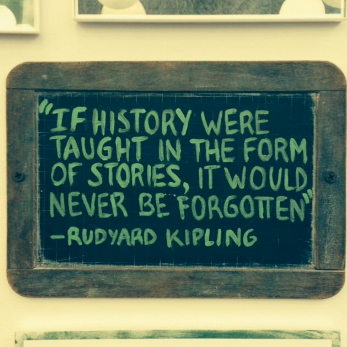 "IF HISTORY WERE
TAUGHT IN THE FORM
OF STORIES, IT WOULD
NEVER BE FORGOTTEN"
-RUDYARD KIPLING